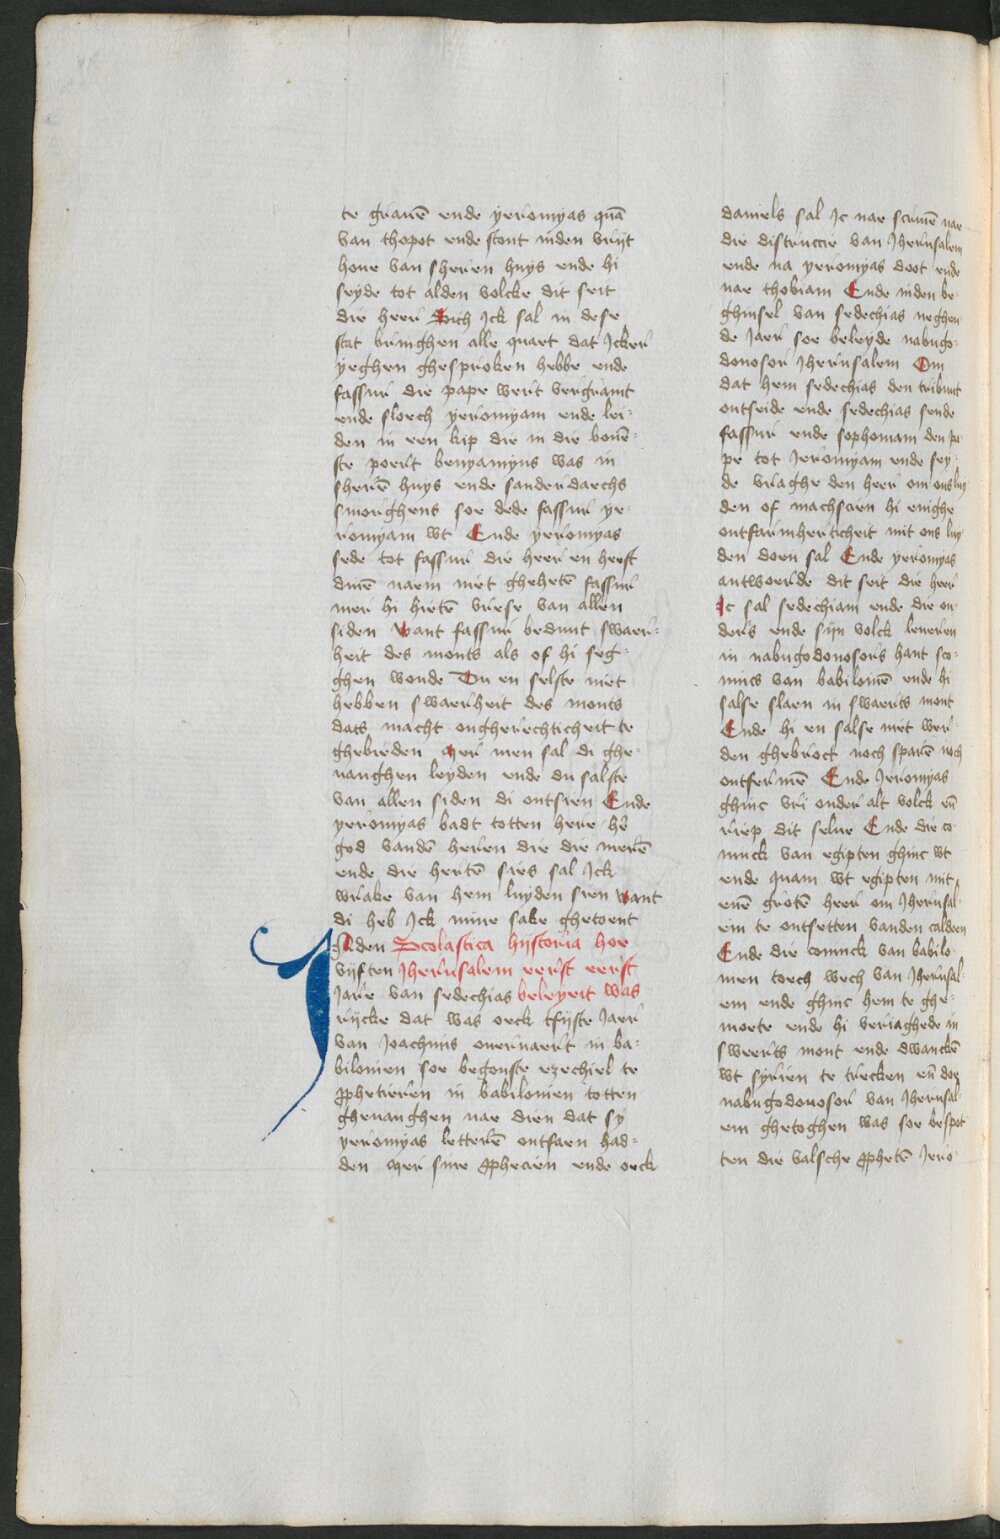 te grauē ende yeromyas quā
van thopet ende stont inden vrijt
houe van sheren huys ende hi
seyde tot alden volcke dit seit
die heer Sich Ick sal in dese
stat bringhen alle quaet dat Icker
yeghen ghesproken hebbe ende
fassur die pape wert vergramt
ende sloech yeromyam ende lei-
den in een kip die in die bouē-
ste poert benyamyns was in
sherē huys ende sanderdaechs
smorghens soe dede fassur ye-
romyam wt Ende yeromyas
sede tot fassur die heer en heeft
dinē naem niet gehetē fassur
mer hi hietē vrese van allen
siden want fassur bedunt swaer-
heit des monts als of hi seg-
ghen woude Du en selste niet
hebben swaerheit des monts
dats macht ongherechticheit te
ghebieden Mer men sal di ghe-
uanghen leyden ende du salste
van allen siden di ontsien Ende
yeromyas badt totten here her
god vandē heren die die nierē
ende die hertē sies sal Ick
wrake van hem luyden sien want
di heb Ick mine sake ghetoent
INden Scolastica hystoria hoe
vijften Iherusalem eerst eerst
Jare van sedechias beleyeit was
rijcke dat was oeck tfijfte Jaer
van Joachims oueruaert in ba-
bilonien soe begonste ezechiel te
ꝓphetieren in babilonien totten
gheuanghen nae dien dat sy
yeromyas letterē ontfaen had-
den Mer sine ꝓphecien ende oeck
daniels sal Ic nae scriuē nae
die distructie van Iherusalem
ende na yeromyas doot ende
nae thobiam Ende inden be-
ghinsel van sedechias neghen-
de Jaer soe beleyde nabugo-
donosor Iherusalem Om
dat hem sedechias den tribuut
ontseide ende sedechias sende
fassur ende sophoniam den pa-
pe tot Jeromyam ende sey-
de vraghe den heer om ons luy
den of machscien hi enighe
ontfarmherticheit mit ons luy
den doen sal Ende yeromyas
antwoerde dit seit die heer
Ic sal sedechiam ende die on-
ders ende sijn volck leueren
in nabugodonosors hant co-
nincs van babilonē ende hi
salse slaen in swaerts mont
Ende hi en salse niet wer-
den ghebroct noch sparē noch
ontfermē Ende Jeromyas
ghinc vri onder alt volck eñ
riep dit selue Ende die co-
ninck van egipten ghinc wt
ende quam wt egipten mit
enē grotē heer om Iherusal-
em te ontsetten vanden caldeen
Ende die coninck van babilo-
nien toech wech van Iherusal-
em ende ghinc hem te ghe-
moete ende hi veriaghede in
sweerts mont ende dwanckē
wt syrien te trecken eñ doe
nabugodonosor van Iherusal-
em ghetoghen was soe bespot
ten die valsche ꝓphetē Jero-